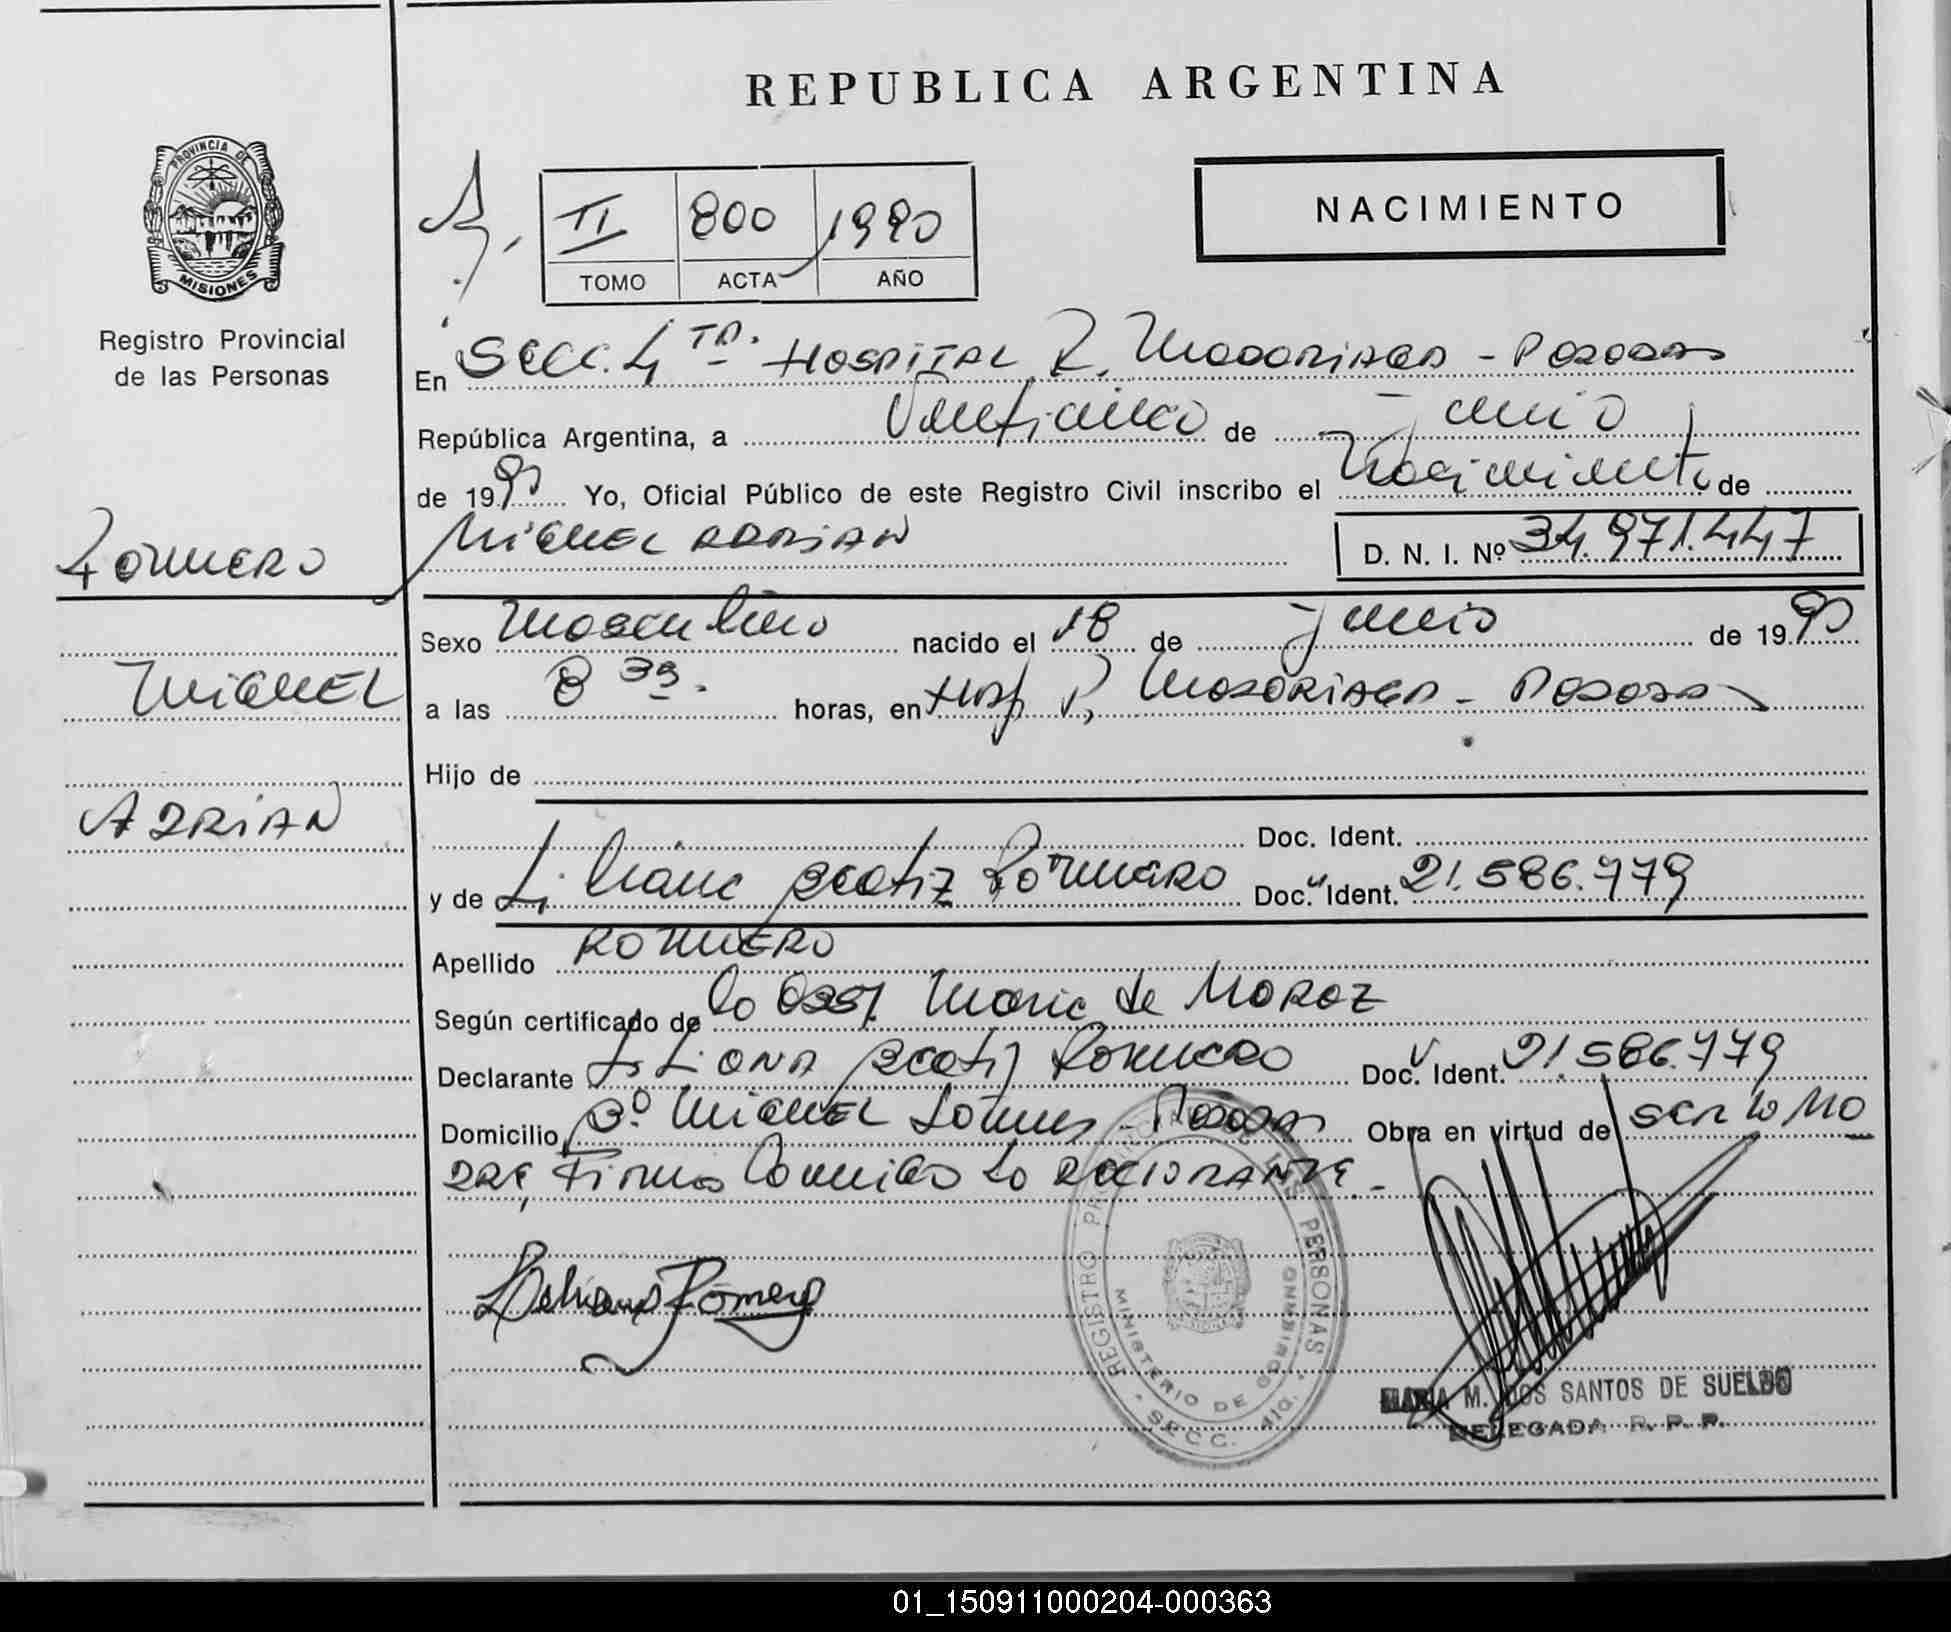 REPUBLICA ARGENTINA
PROVINCIA DE
MISIONES
Registro Provincial
de las Personas
II 800 1990
TOMO ACTA AÑO
NACIMIENTO
En Secc. 4 TA. HOSPITAL R. MADARIAGA - POSADAS
República Argentina, a Veinticinco de junio
de 1990 Yo, Oficial Público de este Registro Civil inscribo el Nacimiento de
ROMERO
MIGUEL ADRIAN
D. N. I. Nº 34.971.447
Sexo Masculino nacido el 18 de junio de 1990
MIGUEL
a las 8 horas, en Hosp R, MADARIAGA - POSADAS
Hijo de
ADRIAN
Doc. Ident.
y de Liliana Beatriz ROMERO Doc. Ident. 21.586.779
Apellido ROMERO
Según certificado de la Obst. Maria de MOROZ
Declarante LILIANA Beatriz ROMERO Doc. Ident. 21.586.779
Domicilio Bº MIGUEL Lanus - Posadas Obra en virtud de SER la MA
DRE, Firma Conmigo la DECLARANTE. -
Liliana Romero
REGISTRO PROVINCIAL DE LAS PERSONAS
MINISTERIO DE GOBIERNO
SECC. 4TA.
MARIA M. DOS SANTOS DE SUELDO
DELEGADA R. P. P.
01_150911000204-000363